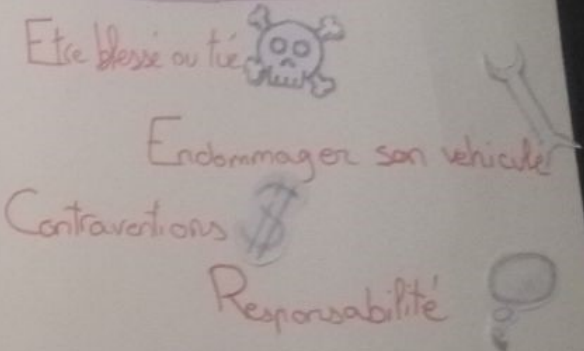 Etre blessé ou tué
Endommager son vehicule
Contraventions $
Responsabilité